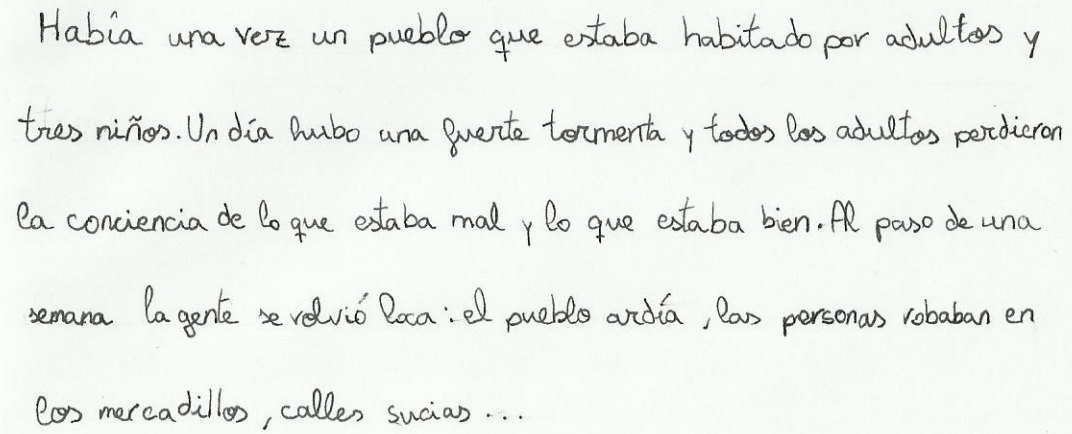 Había una vez un pueblo que estaba habitado por adultos y
tres niños. Un día hubo una fuerte tormenta y todos los adultos perdieron
la conciencia de lo que estaba mal y lo que estaba bien. Al paso de una
semana la gente se volvió loca: el pueblo ardía, las personas robaban en
los mercadillos, calles sucias...